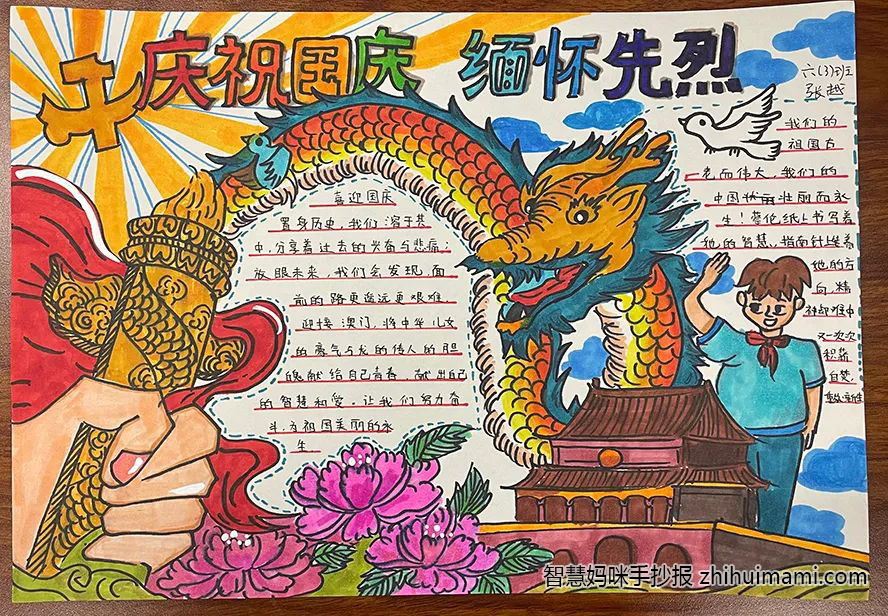 庆祝国庆 缅怀先烈
六(3)班
张越
喜迎国庆
置身历史,我们溶于其
中,分享着过去的兴奋与悲痛;
放眼未来,我们会发现,面
前的路更遥远更艰难.
迎接澳门,将中华儿女
的豪气与龙的传人的胆
魄献给自己青春,献出自己
的智慧和爱.让我们努力奋
斗,为祖国美丽的永
生
我们的
祖国古
老而伟大,我们的
中国壮丽而永
生!蔡伦纸上书写着
她的智慧,指南针上坐着
她的方
向,精
神却难中
又一次次
积蓄
自焚,
智慧妈咪手抄报 zhihuimami.com